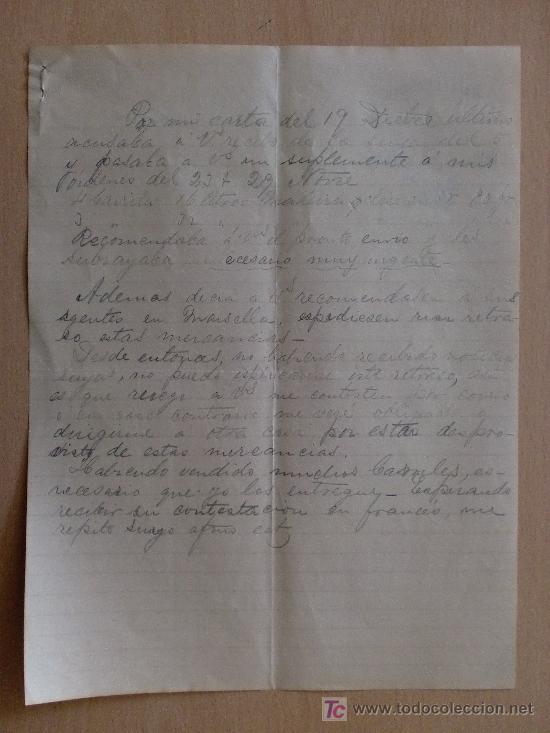 Por mi carta del 19 Dicbre último
acusaba á Vs recibo de la suya del
y pasaba a Vs un suplemento á mis
ordenes del 23 y 29 Novre
4 barriles 16 litros Madeira
3 " 32 "
Recomendaba á Vs el pronto envio y les
subrayaba necesario muy urgente -
Ademas decia a Vs recomendasen a sus
agentes en Marsella, espediesen sin retra-
so estas mercancias -
Desde entonces, no habiendo recibido noticias
suyas, no puedo esplicarme este retraso, asi
es que ruego a Vs me contesten por correo
en caso contrario me veré obligado a
dirigirme a otra casa por estar despro-
visto de estas mercancias.
Habiendo vendido muchos barriles, es
necesario que yo los entregue - Esperando
recibir su contestacion en frances, me
repito suyo afmo
TC www.todocoleccion.net